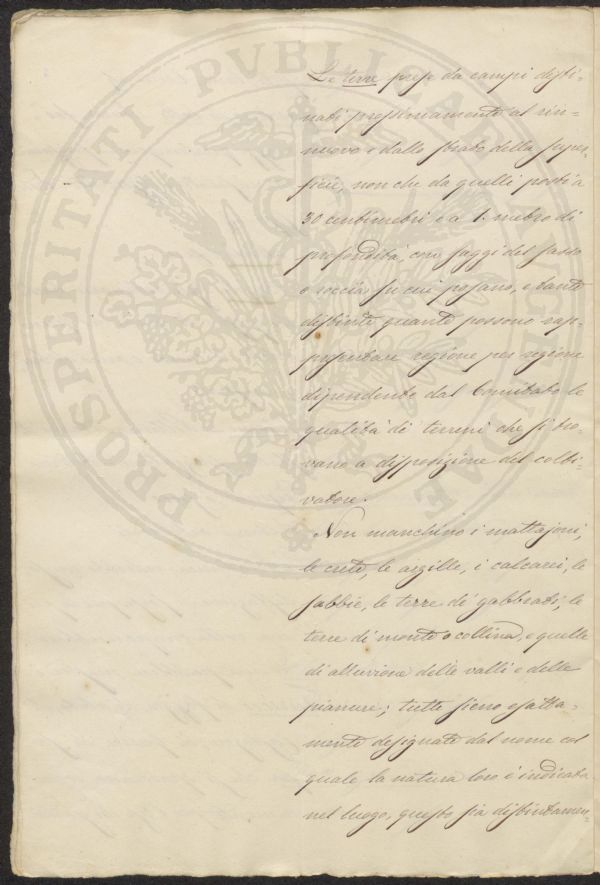 Le terre prese da campi desti-
nati prossimamente al rin-
nuovo e dallo strato della super-
ficie, non che da quelli posti a
30 centimetri e a 1. metro di
profondità, con saggi del sasso
o roccia su cui posano, e tante
distinte quante possono rap-
presentare regione per regione
dipendente dal Comitato le
qualità di terreni che si tro-
vano a disposizione del colti-
vatore.
Non manchino i mattajoni,
le crete, le argille, i calcarei, le
sabbie, le terre di gabbrati, le
terre di monte o collina, e quelle
di alluvione delle valli e delle
pianure; tutte sieno esatta-
mente designate dal nome col
quale la natura loro è indicata
nel luogo, questo sia distintamen-
PROSPERITATI PVBLICAE AVGENDAE